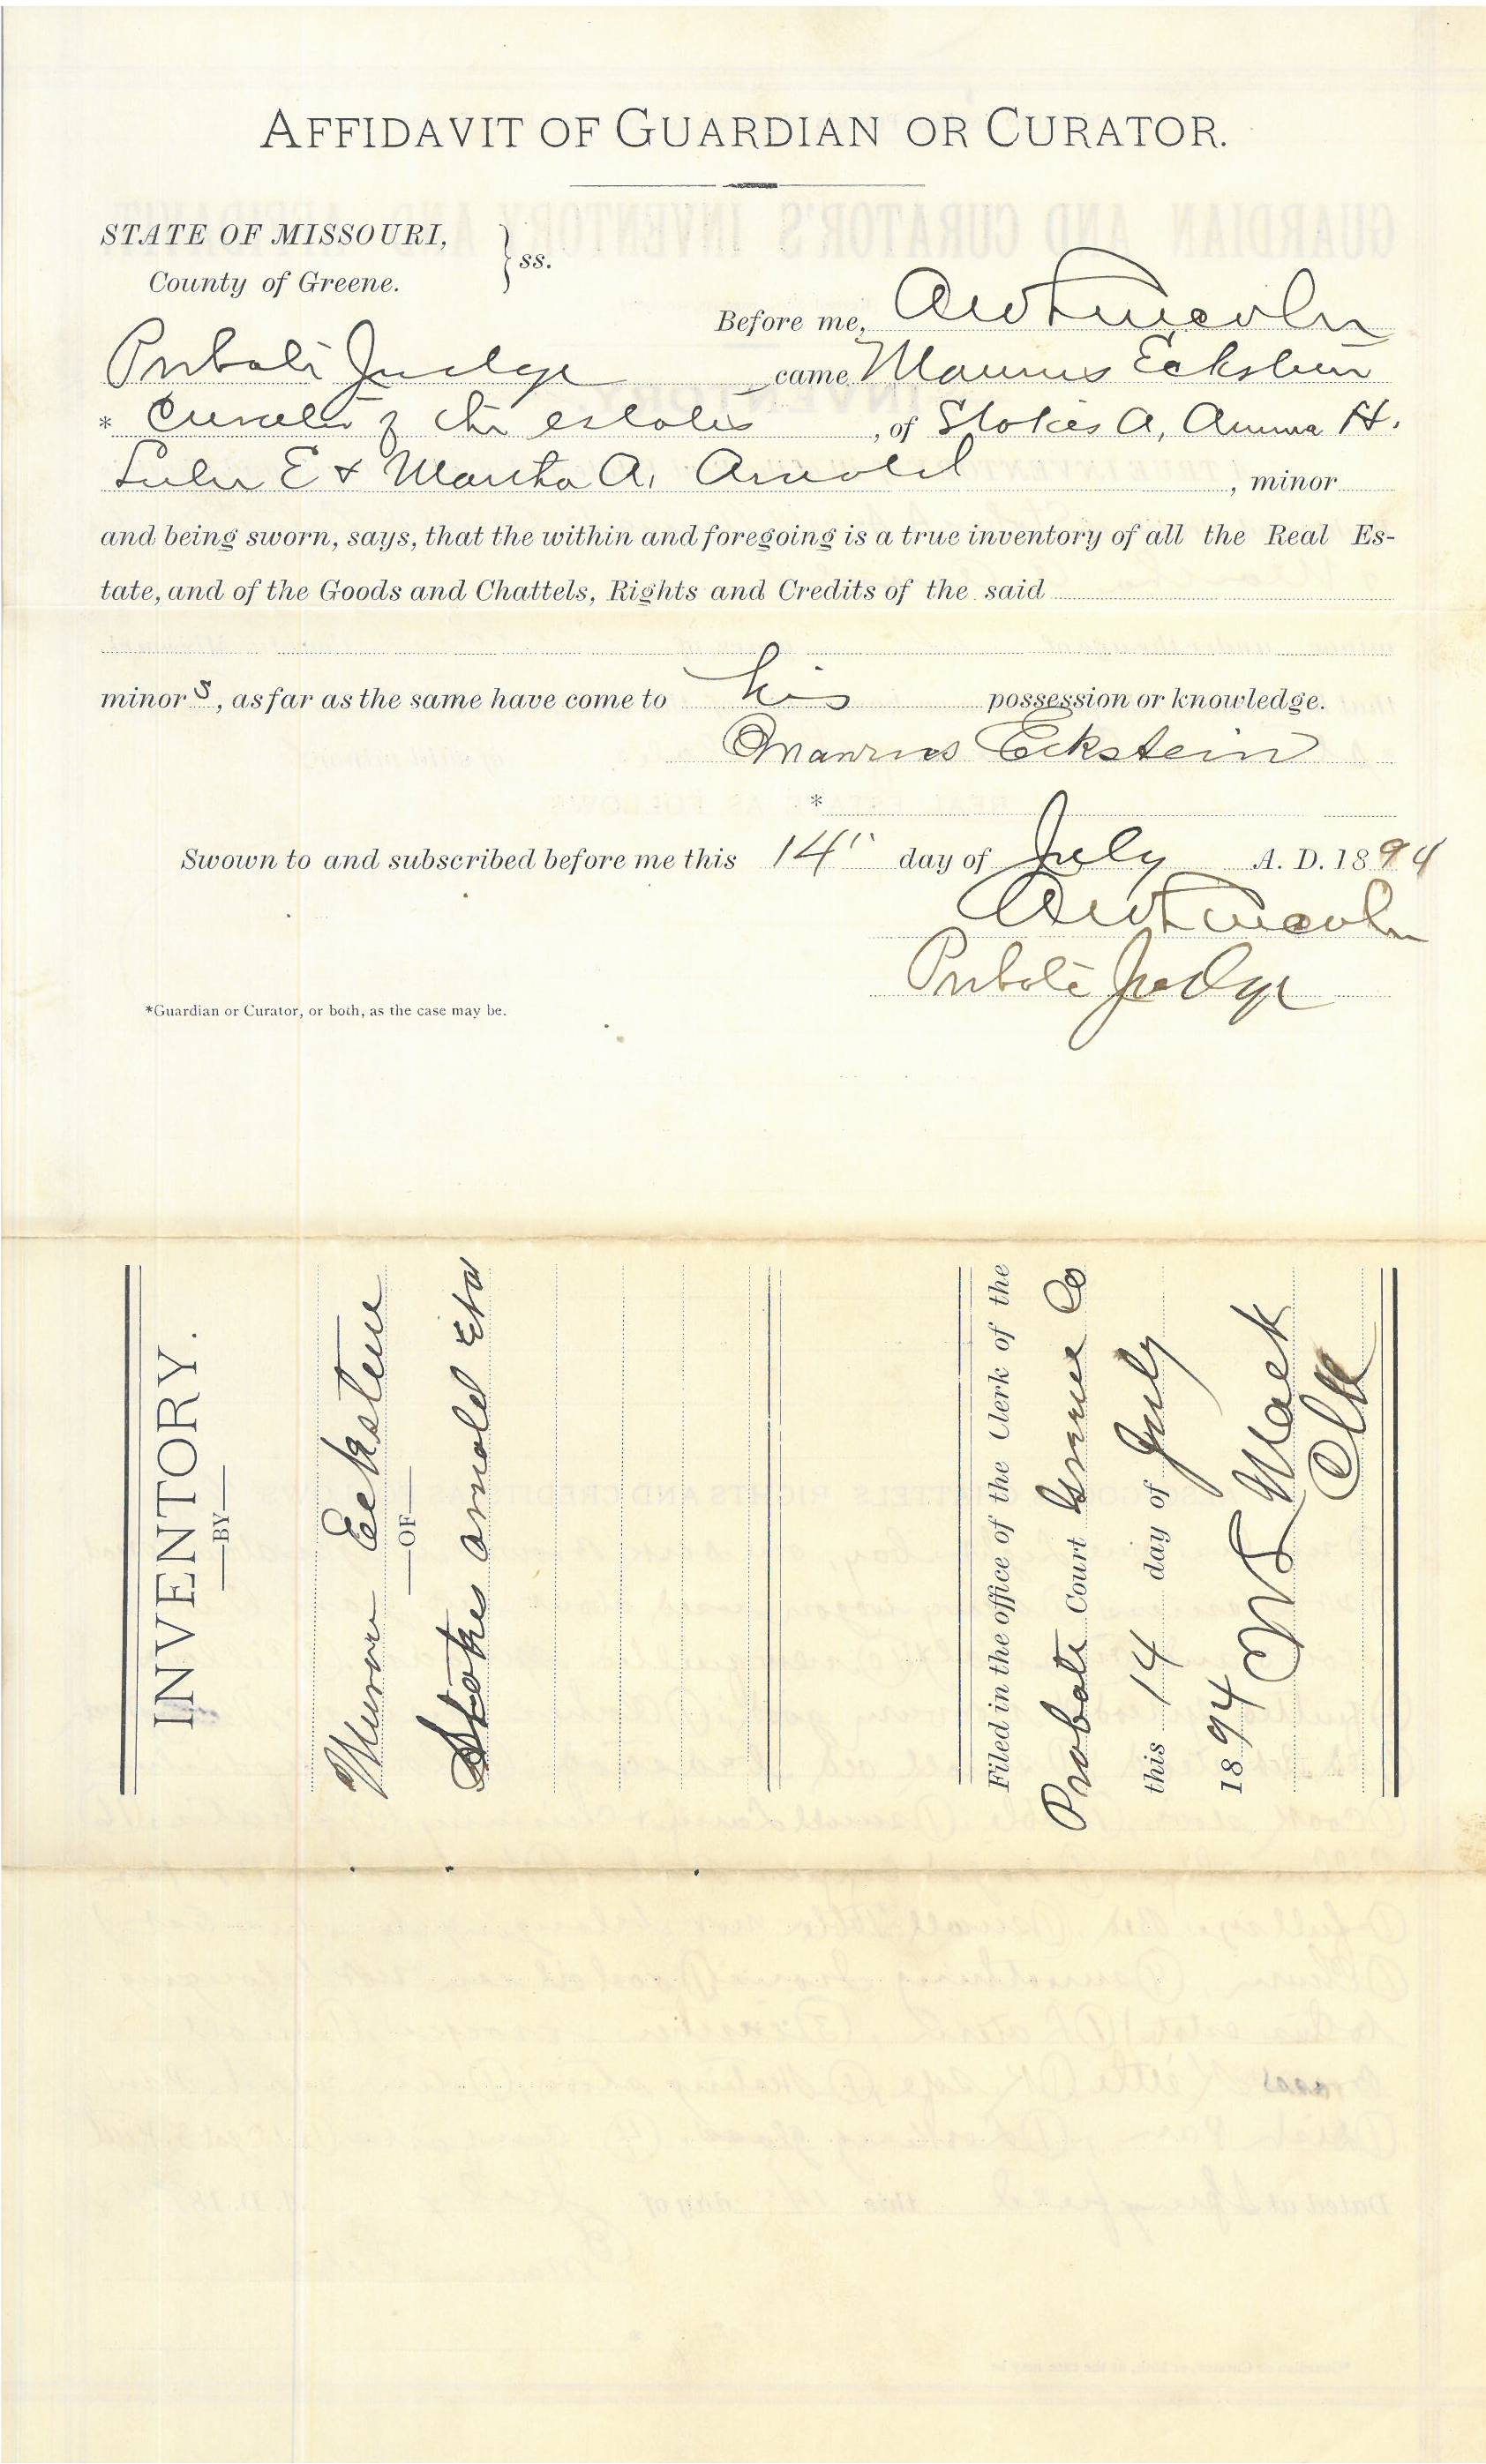 AFFIDAVIT OF GUARDIAN OR CURATOR.
STATE OF MISSOURI,
County of Greene. } ss.
Before me, A W Lincoln
Probate Judge came Maurus Eckstein
* Curator of the estates, of Stokes A, Anna H.
Lulu E & Martha A. Arnold, minor
and being sworn, says, that the within and foregoing is a true inventory of all the Real Es-
tate, and of the Goods and Chattels, Rights and Credits of the said
minor s, as far as the same have come to his possession or knowledge.
Eckstein
*
Swown to and subscribed before me this 14" day of July A. D. 1894
A W Lincoln
Probate Judge
*Guardian or Curator, or both, as the case may be.
INVENTORY.
—BY—
Eckstein
—OF—
Stokes Arnold
Filed in the office of the Clerk of the
Probate Court Greene Co
this 14 day of July
1894
Mack
Clk